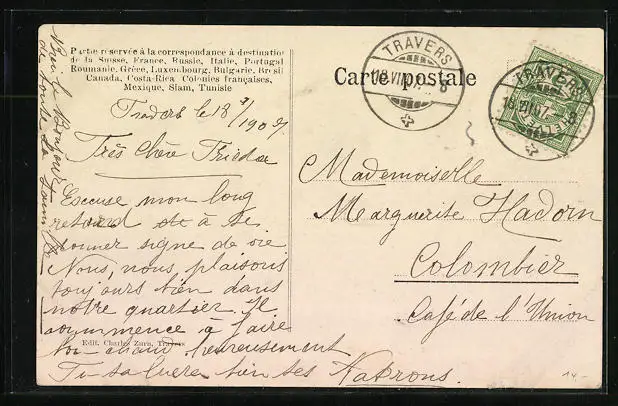 Partie réservée à la correspondance à destination
de la Suisse, France, Russie, Italie, Portugal
Roumanie, Grèce, Luxembourg, Bulgarie, Brésil
Canada, Costa-Rica Colonies françaises,
Mexique, Siam, Tunisie
Carte postale
TRAVERS
18.VII.07. 8
TRAVERS
18.VII.07. 8
Travers le 18 7/1907
Très chère Frieda
Excuse mon long
retard à te
donner signe de vie
Nous, nous plaisons
toujours bien dans
notre quartier. Il
commence à faire
Edit. Charles Zurn, Travers
bien chaud heureusement
Tu salueras bien tes Patrons.
Mademoiselle
Marguerite Hadorn
Colombier
Café de l'Union
de toute la famille
14.-